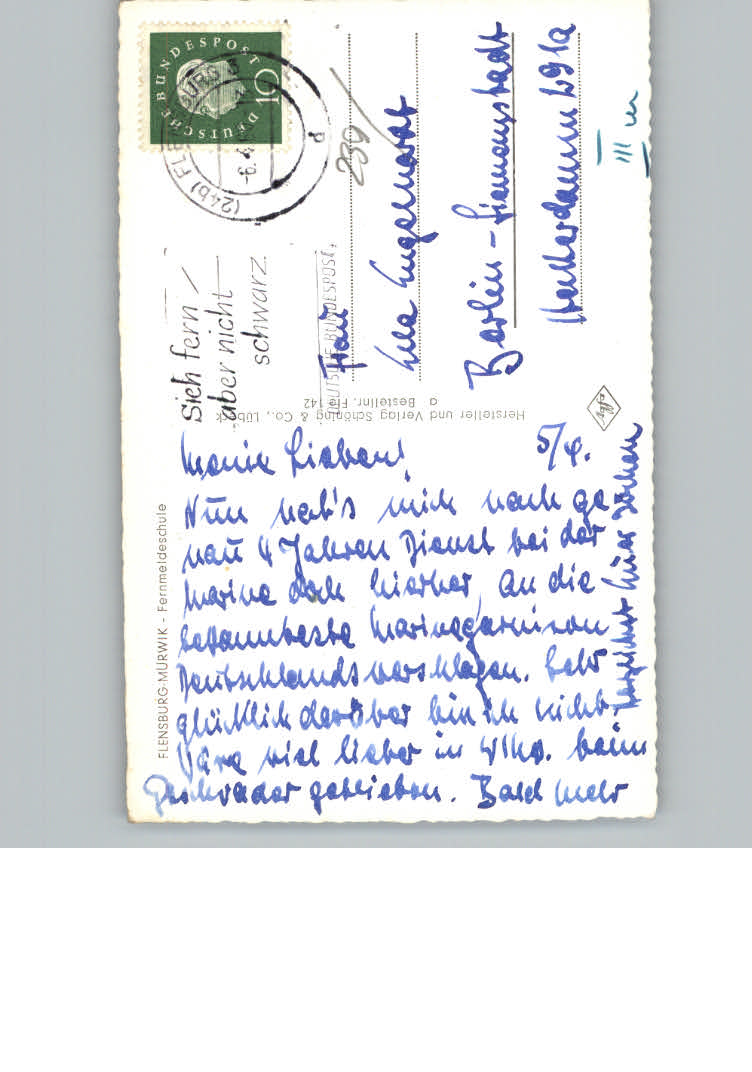 FLENSBURG-MÜRWIK - Fernmeldeschule
Meine Lieben!
5/4.
Nun hat's mich nach ge
nau 4 Jahren Dienst bei der
Marine doch hierher, an die
bekannteste Marinegarnison
Deutschlands verschlagen. Sehr
glücklich darüber bin ich nicht.
Wäre viel lieber in Whv. beim
Geschwader geblieben. Bald mehr
herzlichst Euer
Hersteller und Verlag Schöning & Co., Lübeck
a Bestellnr. Fle 142
agfa
DEUTSCHE BUNDESPOST
10
(24b) FLENSBURG 3
-6.4
d
Sieh fern
aber nicht
schwarz
DEUTSCHE BUNDESPOST
239/
Frau
Engelhardt
Berlin-Siemensstadt
Heckerdamm 291a
III